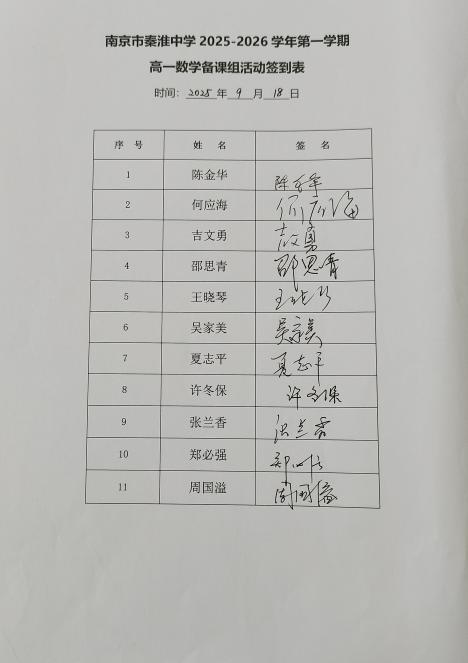 南京市秦淮中学 2025-2026 学年第一学期
高一数学备课组活动签到表
时间： 2025 年 9 月 18 日
序 号 姓 名 签 名
1 陈金华 陈金华
2 何应海 何应海
3 吉文勇 吉文勇
4 邵思青 邵思青
5 王晓琴 王晓琴
6 吴家美 吴家美
7 夏志平 夏志平
8 许冬保 许冬保
9 张兰香 张兰香
10 郑必强 郑必强
11 周国溢 周国溢